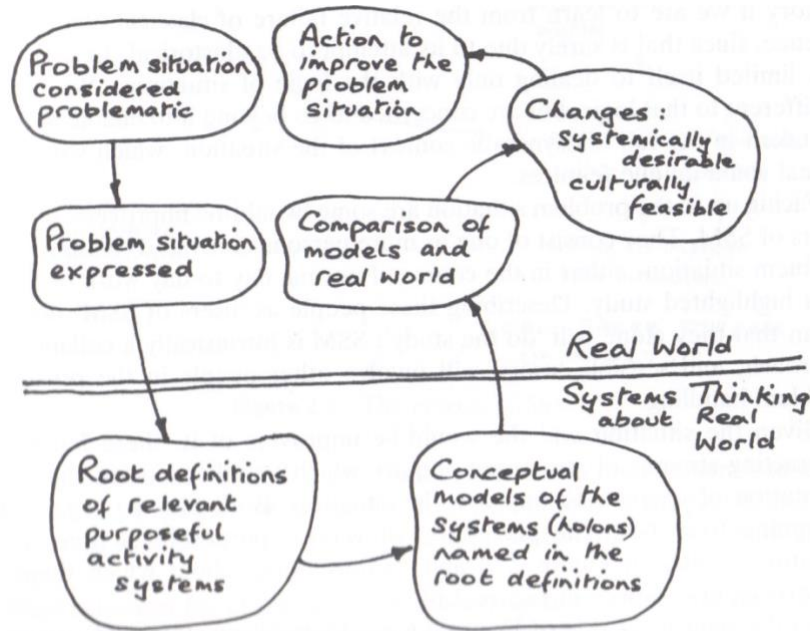 Problem situation
considered
problematic
Action to
improve the
problem
situation
Changes:
systemically
desirable
culturally
feasible
Problem situation
expressed
Comparison of
models and
real world
Real World
Systems Thinking
about Real
World
Root definitions
of relevant
purposeful
activity
systems
Conceptual
models of the
systems (holons)
named in the
root definitions